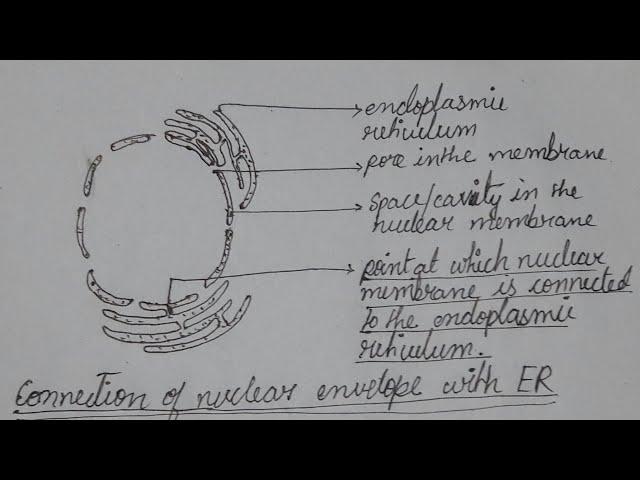 endoplasmic
reticulum
pore in the membrane
space/cavity in the
nuclear membrane
point at which nuclear
membrane is connected
to the endoplasmic
reticulum.
Connection of nuclear envelope with ER